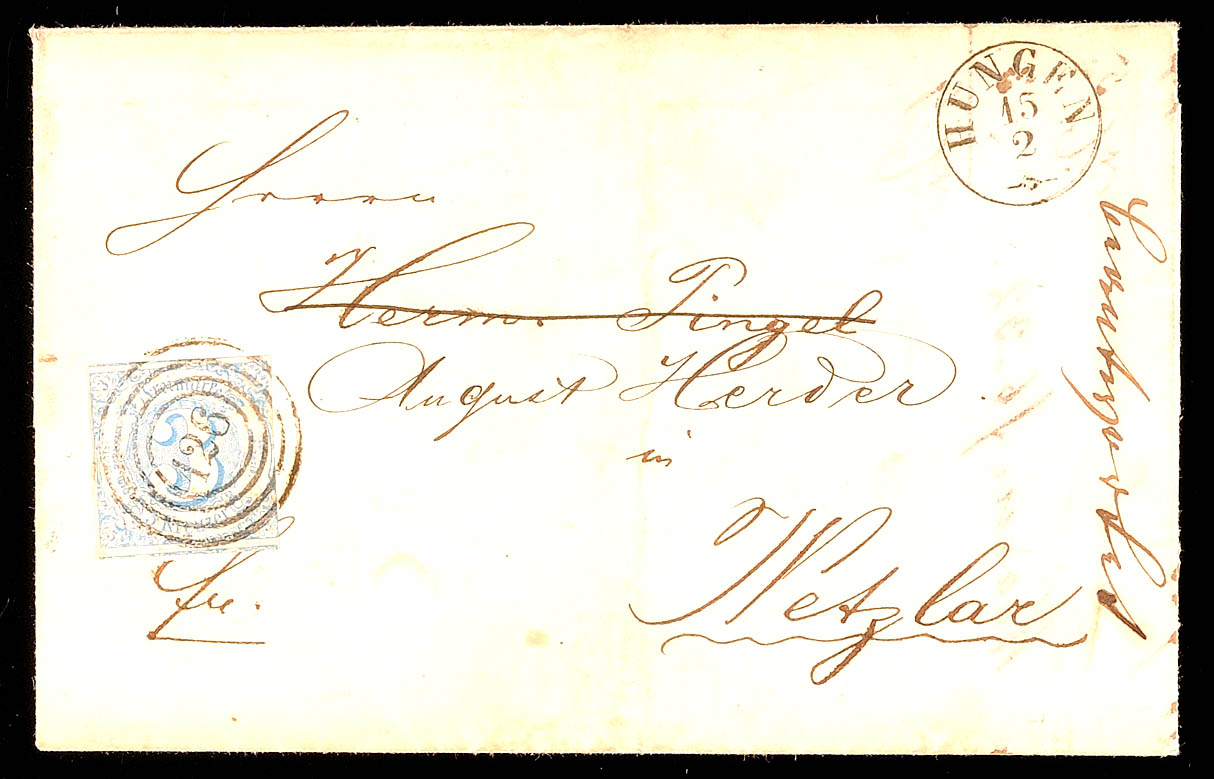 HUNGEN
15
2
Herrn
Herm. Pingel
August Herder
in
Wetzlar
fre.
3
126
Kreuzer